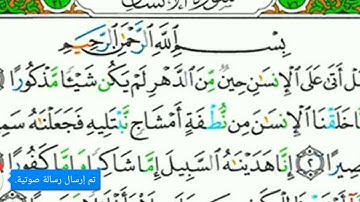 سُورَةُ الإِنسَانِ
بِسْمِ اللَّهِ الرَّحْمَٰنِ الرَّحِيمِ
أَتَىٰ عَلَى الْإِنسَانِ حِينٌ مِّنَ الدَّهْرِ لَمْ يَكُن شَيْئًا مَّذْكُورًا ١
خَلَقْنَا الْإِنسَانَ مِن نُّطْفَةٍ أَمْشَاجٍ نَّبْتَلِيهِ فَجَعَلْنَاهُ
٢ إِنَّا هَدَيْنَاهُ السَّبِيلَ إِمَّا شَاكِرًا وَإِمَّا كَفُورًا ٣
تم إرسال رسالة صوتية.